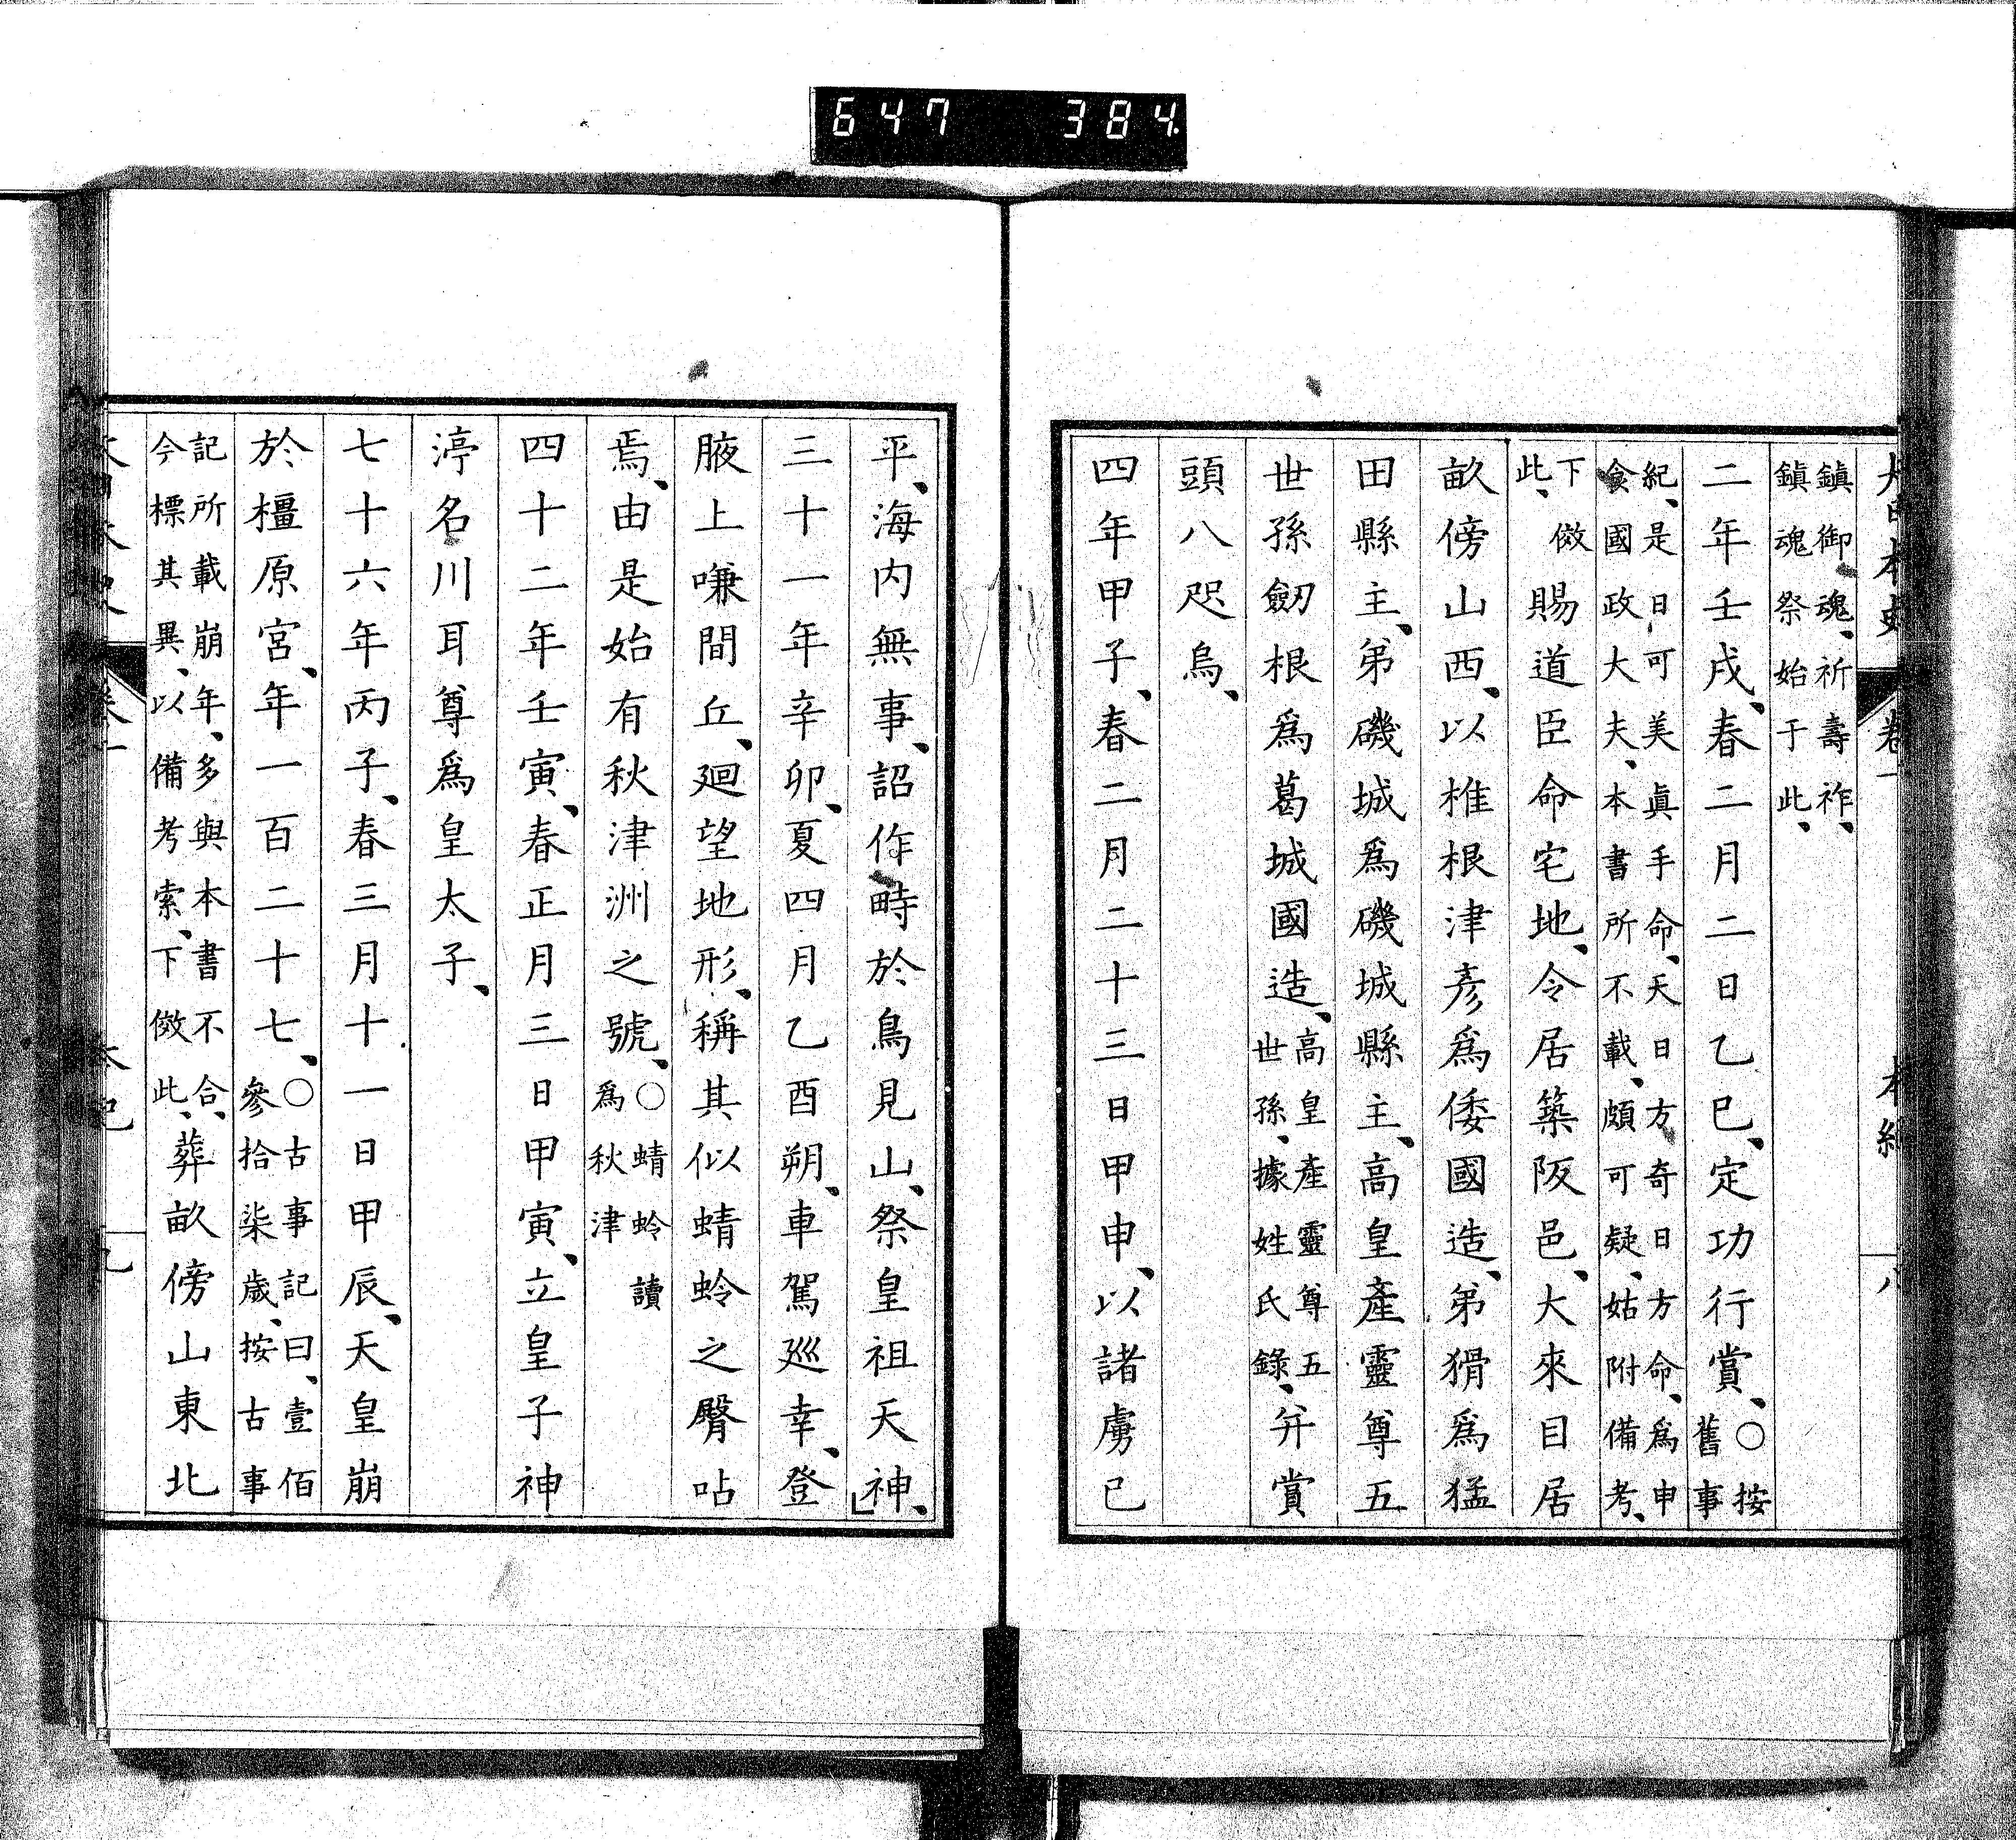 647 384.
鎮御魂、祈壽祚、
鎮魂祭始于此、
二年壬戌、春二月二日乙巳、定功行賞、○按舊事
紀、是日可美眞手命、天日方奇日方命、爲申
食國政大夫、本書所不載、頗可疑、姑附備考、
下傚此、賜道臣命宅地、令居築阪邑、大來目居
畝傍山西、以椎根津彥爲倭國造、弟猾爲猛
田縣主、弟磯城爲磯城縣主、高皇產靈尊五
世孫劒根爲葛城國造、高皇產靈尊五世孫、據姓氏錄、幷賞
頭八咫烏、
四年甲子、春二月二十三日甲申、以諸虜已
平、海內無事、詔作畤於鳥見山、祭皇祖天神、
三十一年辛卯、夏四月乙酉朔、車駕巡幸、登
腋上嗛間丘、廻望地形、稱其似蜻蛉之臀呫
焉、由是始有秋津洲之號、○蜻蛉讀爲秋津
四十二年壬寅、春正月三日甲寅、立皇子神
渟名川耳尊爲皇太子、
七十六年丙子、春三月十一日甲辰、天皇崩
於橿原宮、年一百二十七、○古事記曰、壹佰參拾柒歲、按古事
記所載崩年、多與本書不合、今標其異、以備考索、下傚此、葬畝傍山東北